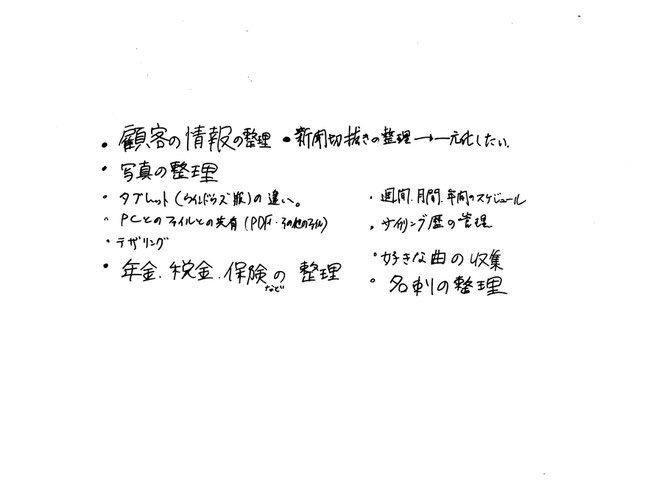 ・顧客の情報の整理 ・新聞切抜きの整理→一元化したい。
・写真の整理
・タブレット(ウインドウズ版)の違い。
・PCとのファイルとの共有(PDF・その他のファイル)
・テザリング
・年金.税金.保険などの整理
・週間.月間.年間のスケジュール
・サイクリング歴の管理
・好きな曲の収集
・名刺の整理